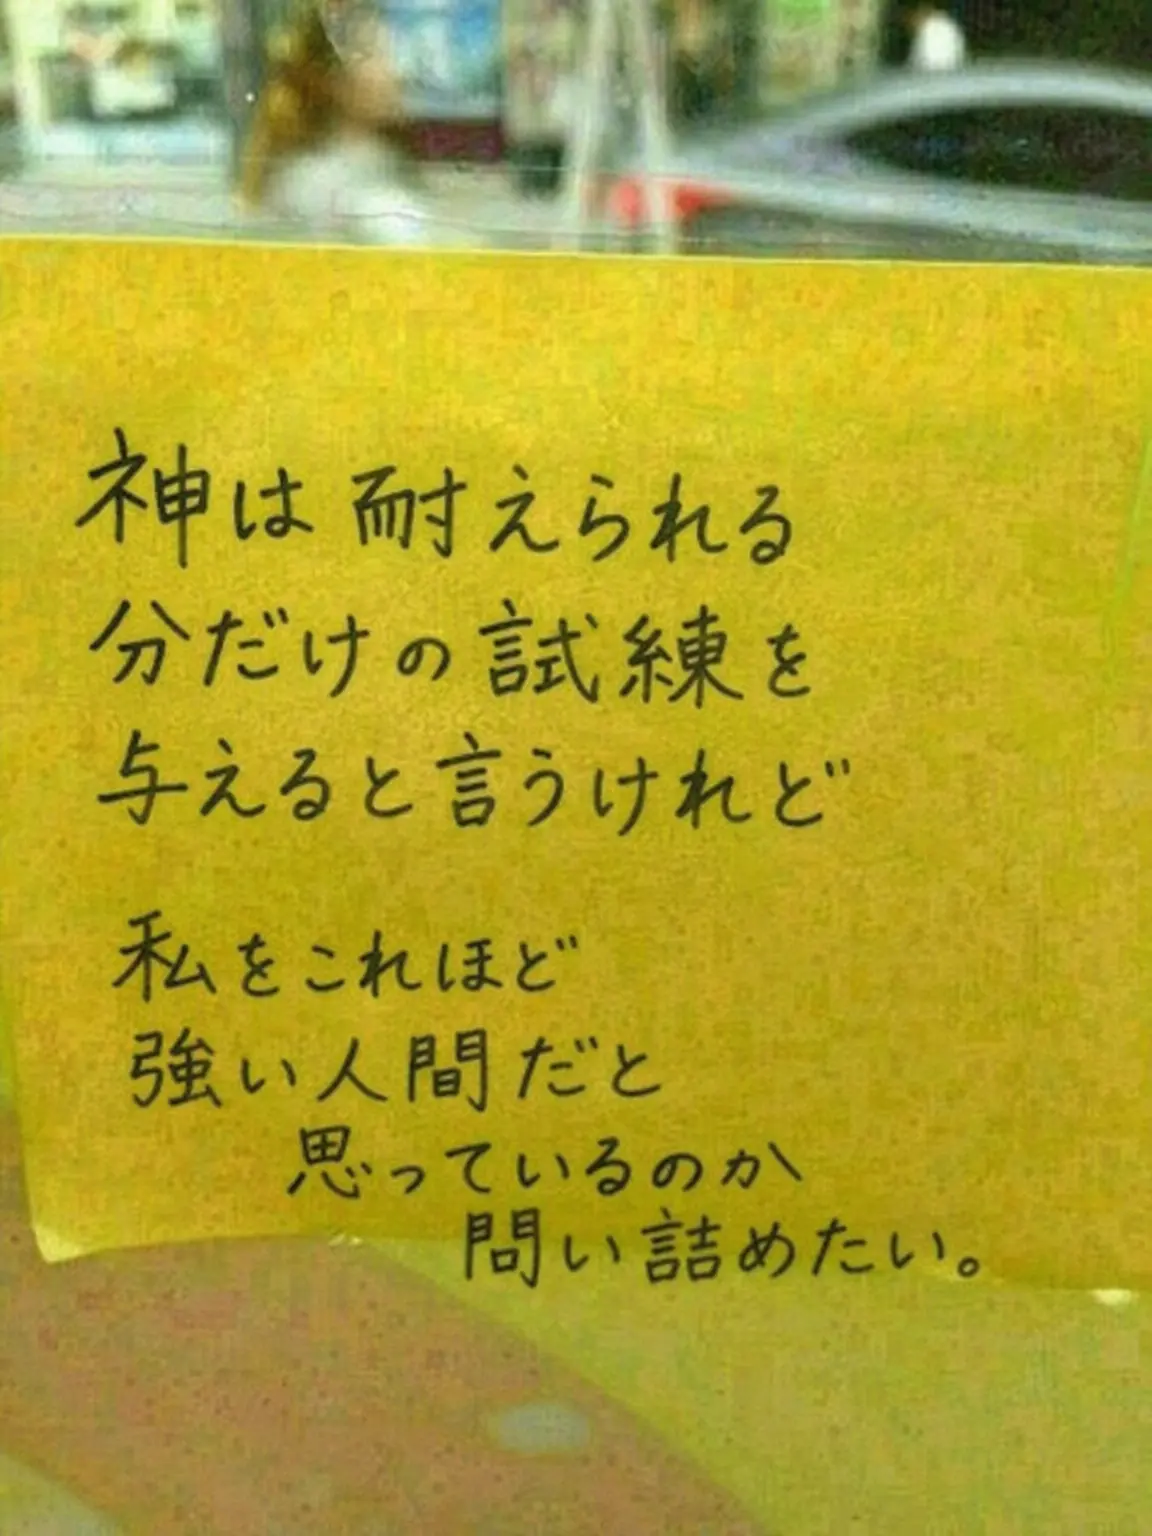 神は耐えられる
分だけの試練を
与えると言うけれど
私をこれほど
強い人間だと
思っているのか
問い詰めたい。